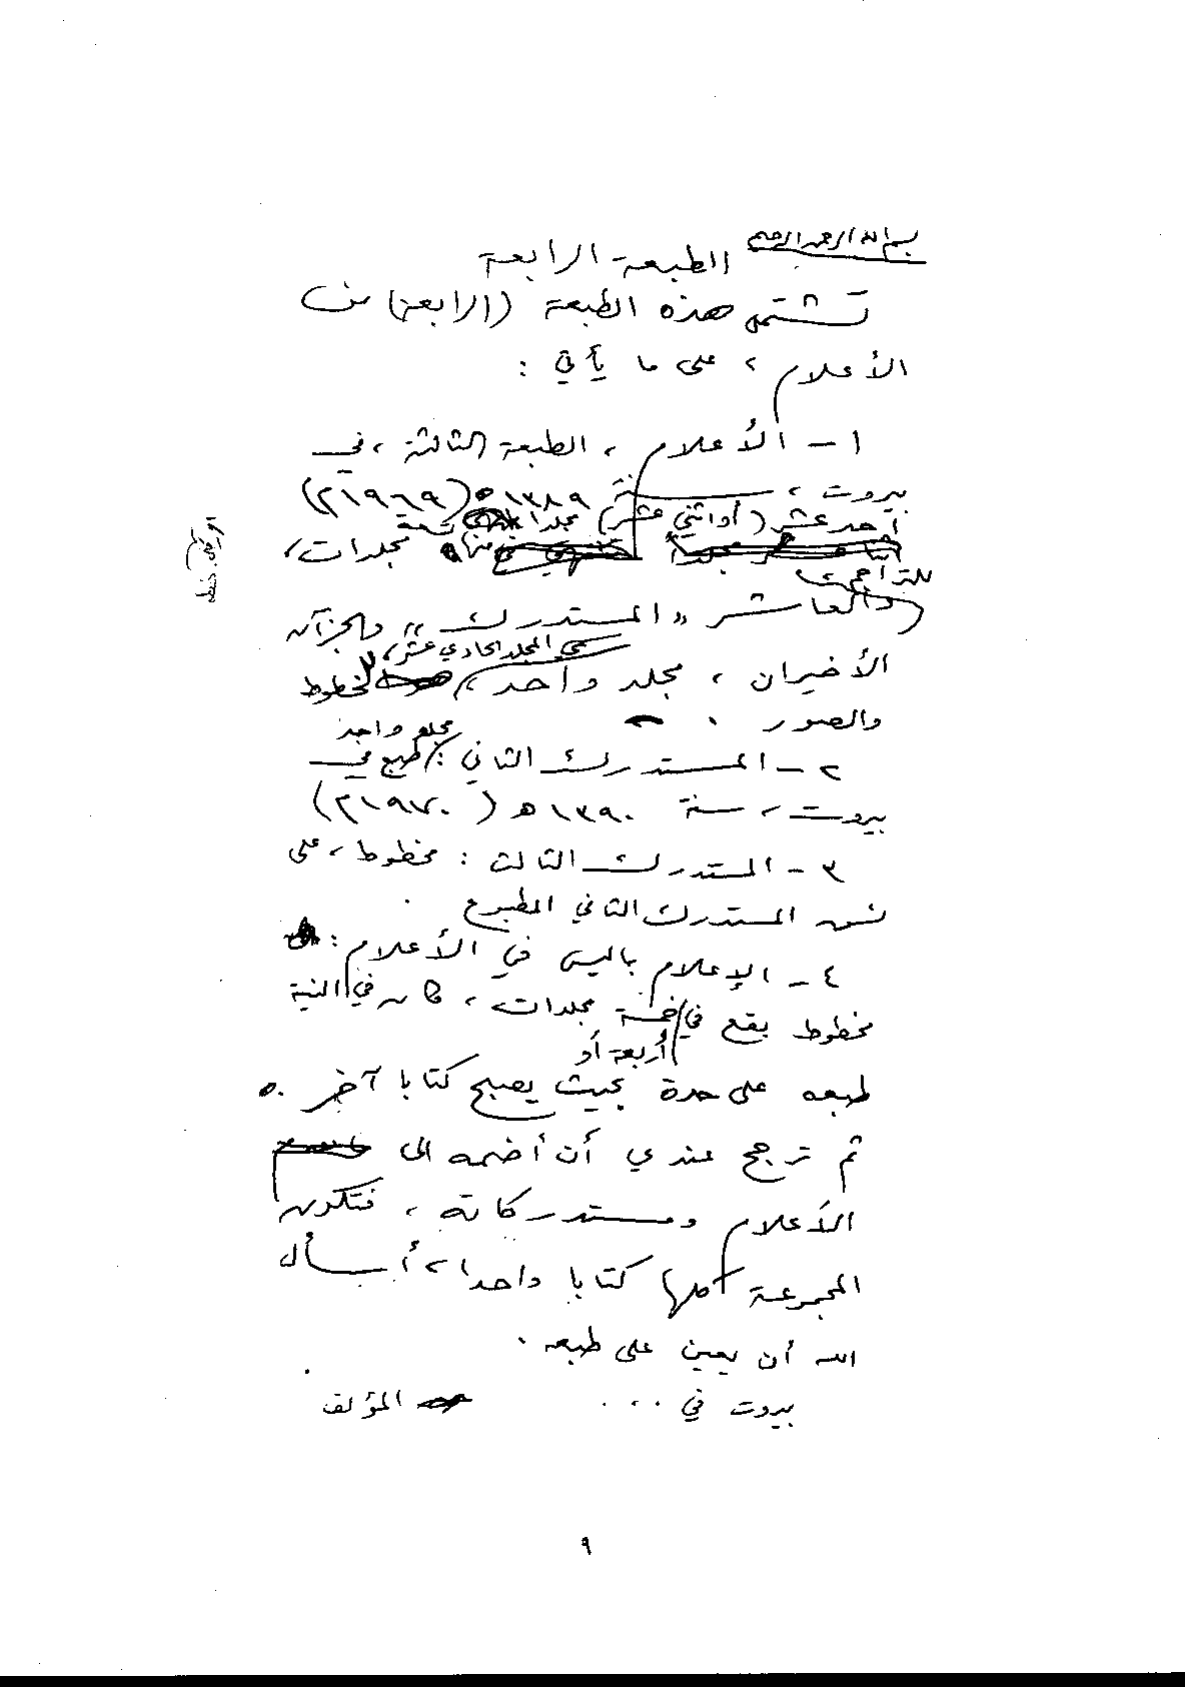 بسم الله الرحمن الرحيم
الطبعة الرابعة
تشتمل هذه الطبعة (الرابعة) من
الأعلام، على ما يأتي:
١ - الأعلام، الطبعة الثالثة، في
بيروت، سنة ١٣٨٩ هـ (١٩٦٩ م)
أحد عشر (أو اثني عشر) مجلدا
منها تسعة مجلدات،
للتراجم،
والعاشر «المستدرك» والجزآن
سمي المجلد الحادي عشر،
الأخيران، مجلد واحد، للخطوط
والصور.
مجلد واحد
٢ - المستدرك الثاني: طبع في
بيروت، سنة ١٣٩٠ هـ (١٩٧٠ م)
٣ - المستدرك الثالث: مخطوط، على
نسق المستدرك الثاني المطبوع.
٤ - الإعلام بما ليس في الأعلام:
مخطوط يقع في خمسة مجلدات، كان في النية
أربعة أو
طبعه على حدة بحيث يصبح كتابا آخر.
ثم ترجح عندي أن أضمه الى
الأعلام ومستدركاته، فتكون
المجموعة كلها كتابا واحدا، أسأل
الله أن يعين على طبعه.
بيروت في ... المؤلف
٩